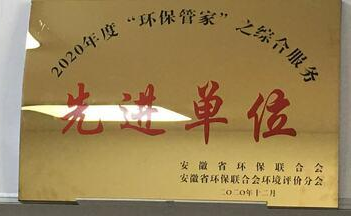 2020年度“环保管家”之综合服务
先进单位
安徽省环保联合会
安徽省环保联合会环境评价分会
二〇二〇年十二月